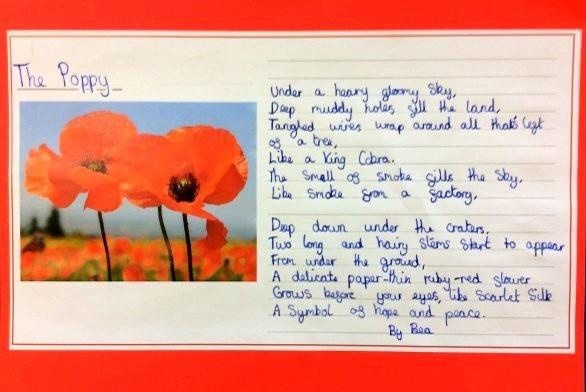 The Poppy
Under a heavy gloomy sky,
Deep muddy holes fill the land,
Tangled wires wrap around all that's left
of a tree,
Like a King Cobra.
The smell of smoke fills the sky,
Like smoke from a factory,
Deep down under the craters,
Two long and hairy stems start to appear
From under the ground,
A delicate paper-thin ruby-red flower
Grows before your eyes, like Scarlet Silk
A Symbol of hope and peace.
By Bea